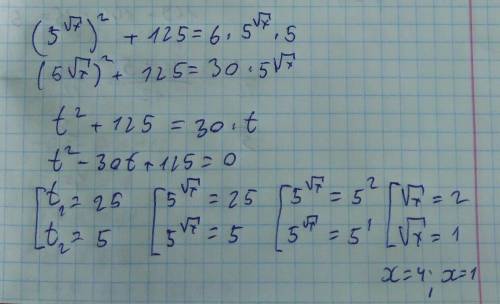 (5^√x)² + 125 = 6 · 5^√x · 5
(5√x)² + 125 = 30 · 5^√x
t² + 125 = 30 · t
t² - 30t + 125 = 0
[t₁ = 25 [5^√x = 25 [5^√x = 5² [√x = 2
t₂ = 5 5^√x = 5 5^√x = 5¹ √x = 1
x = 4; x = 1